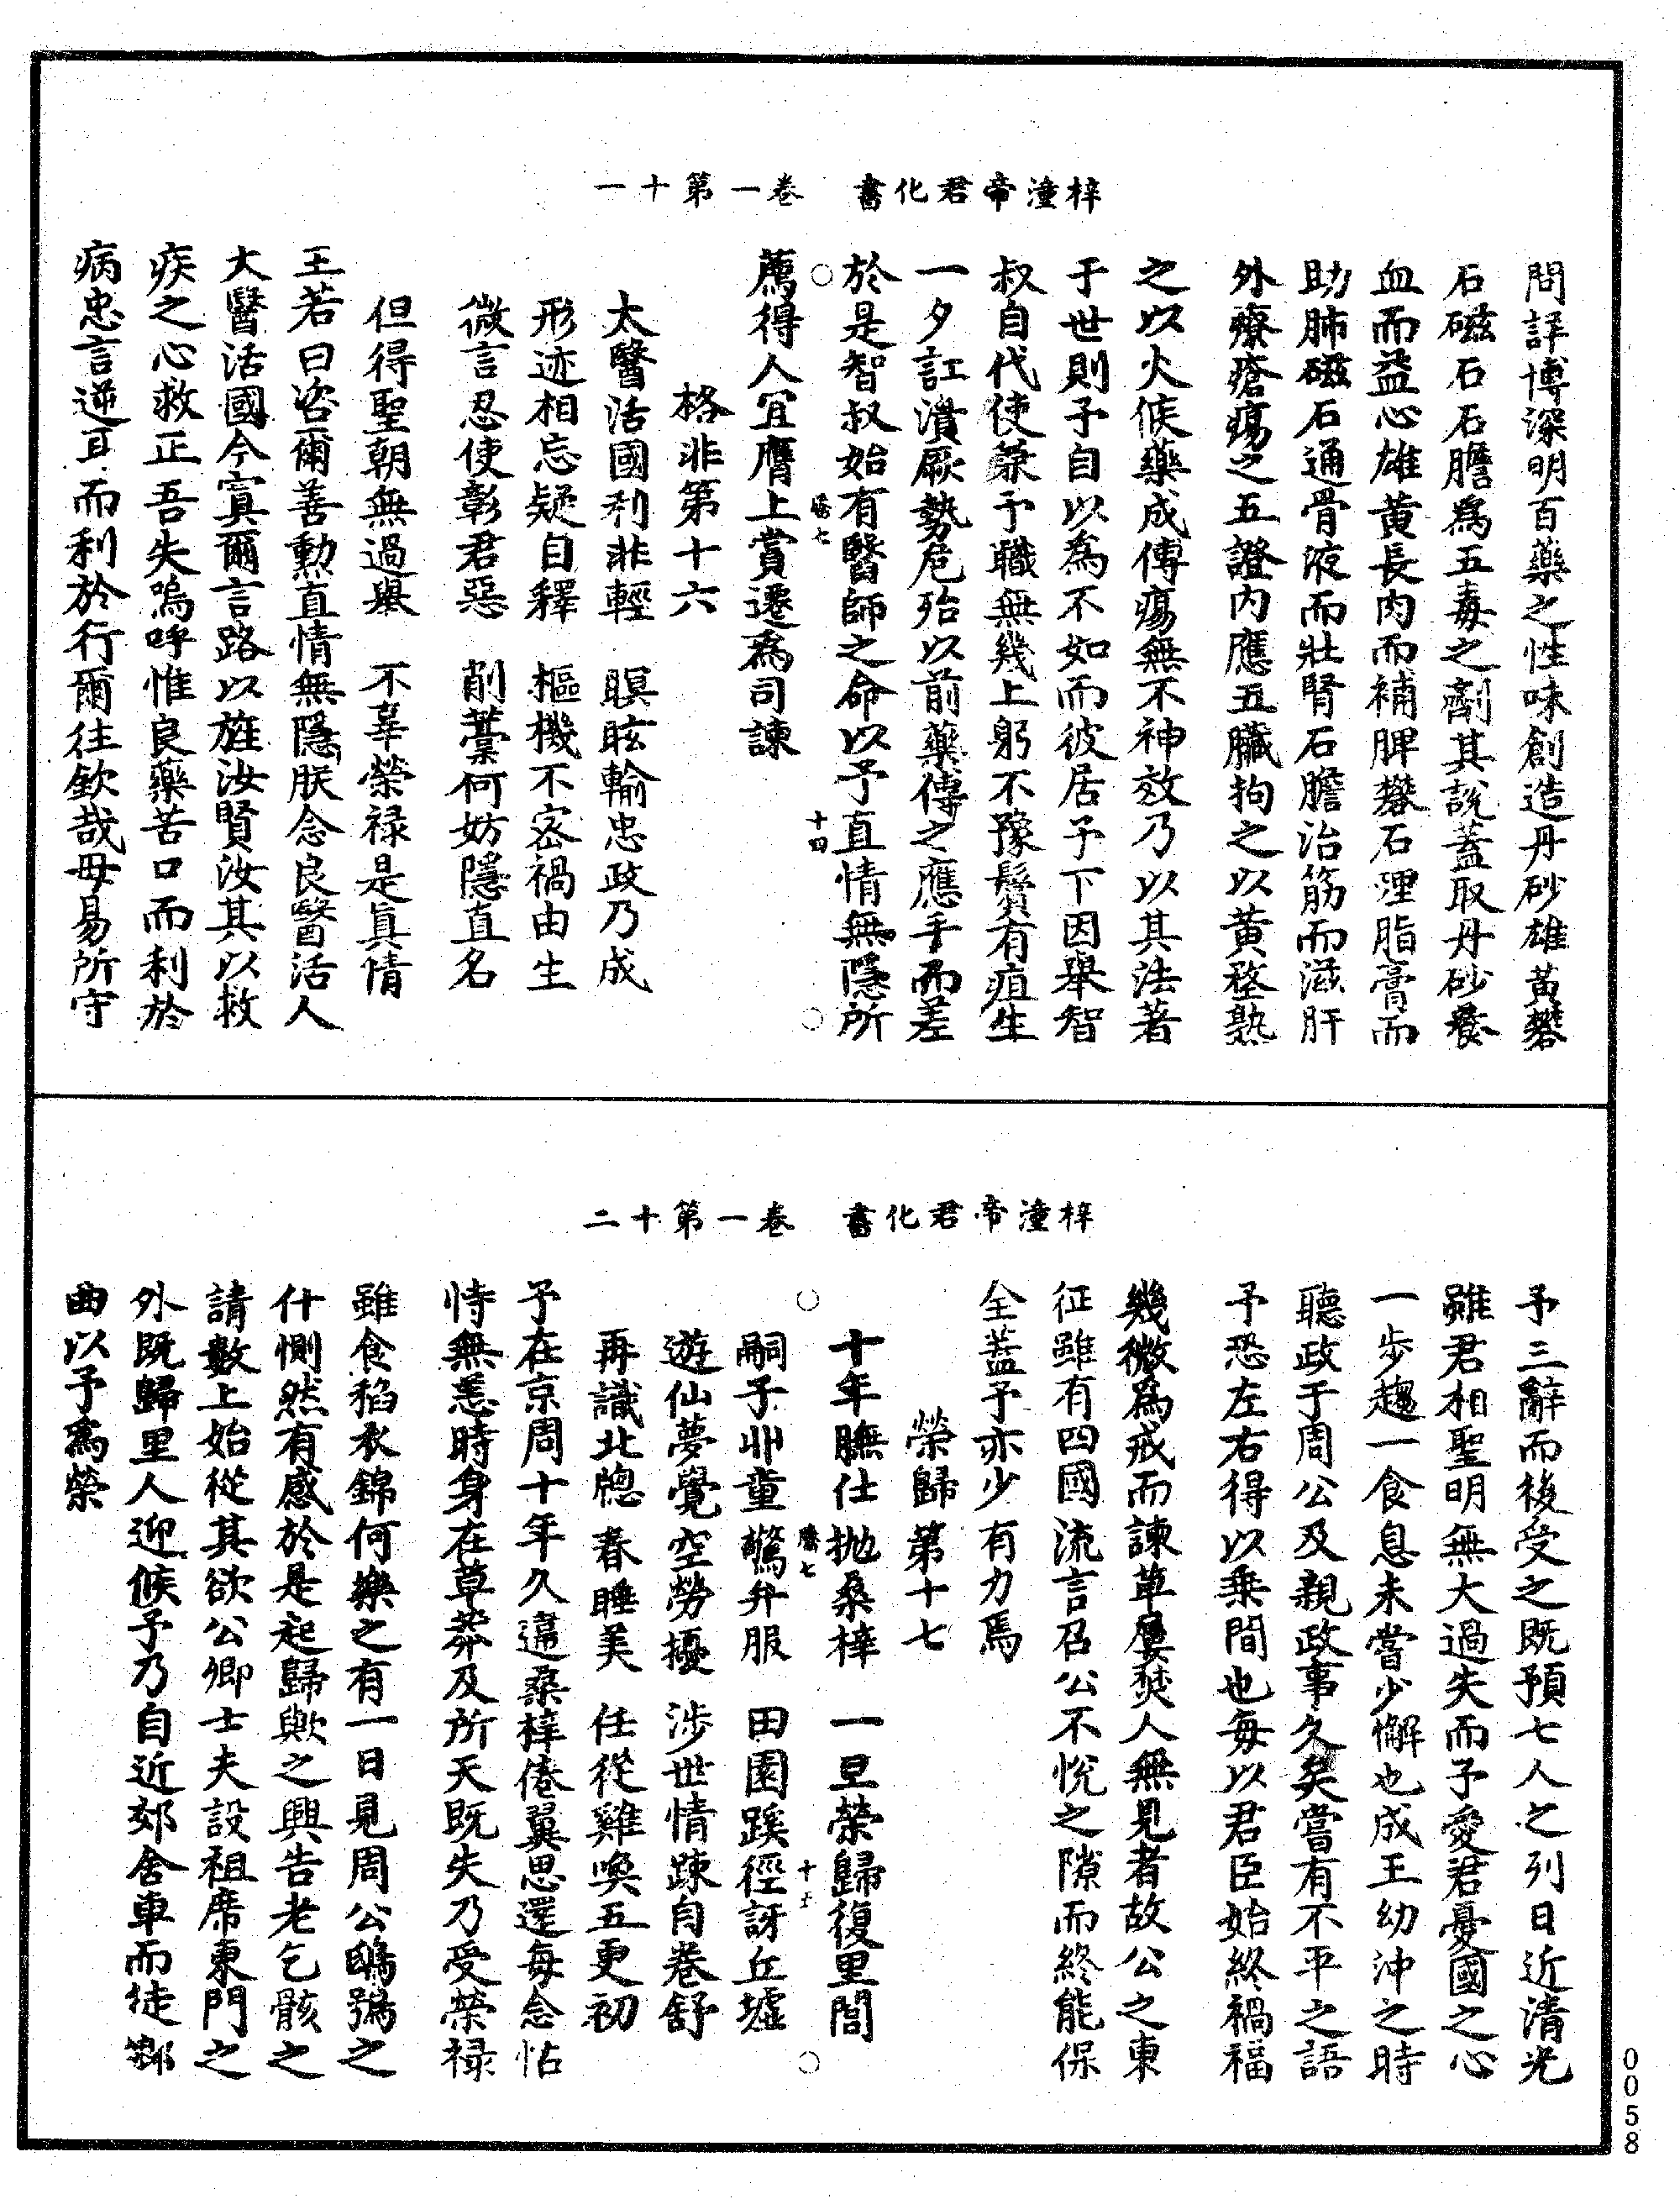 梓潼帝君化書　卷一第十一
問評博深明百藥之性味創造丹砂雄黃礬
石磁石石膽為五毒之劑其說蓋取丹砂養
血而益心雄黃長肉而補脾礬石理脂膏而
助肺磁石通骨液而壯腎石膽治筋而滋肝
外療瘡瘍之五證內應五臟拘之以黃堥熟
之以火候藥成傅瘍無不神效乃以其法著
于世則予自以為不如而彼居予下因舉智
叔自代使兼予職無幾上躬不豫鬢有疽生
一夕訌潰厥勢危殆以前藥傅之應手而差
於是智叔始有醫師之命以予直情無隱所
薦得人宜膺上賞遷為司諫
格非第十六
太醫活國利非輕　瞑眩輸忠政乃成
形迹相忘疑自釋　樞機不密禍由生
微言忍使彰君惡　削藁何妨隱直名
但得聖朝無過舉　不辜榮祿是真情
王若曰咨爾善勳直情無隱朕念良醫活人
大醫活國今寘爾言路以旌汝賢汝其以救
疾之心救正吾失嗚呼惟良藥苦口而利於
病忠言逆耳而利於行爾往欽哉毋易所守
梓潼帝君化書　卷一第十二
予三辭而後受之既預七人之列日近清光
雖君相聖明無大過失而予愛君憂國之心
一步趨一食息未嘗少懈也成王幼沖之時
聽政于周公及親政事久矣嘗有不平之語
予恐左右得以乘間也每以君臣始終禍福
幾微為戒而諫草屢焚人無見者故公之東
征雖有四國流言召公不悅之隙而終能保
全蓋予亦少有力焉
榮歸第十七
十年膴仕拋桑梓　一旦榮歸復里閭
嗣子丱童驚弁服　田園蹊徑訝丘墟
遊仙夢覺空勞擾　涉世情踈自卷舒
再識北牕春睡美　任從雞喚五更初
予在京周十年久違桑梓倦翼思還每念怙
恃無恙時身在草莽及所天既失乃受榮祿
雖食稻衣錦何樂之有一日見周公鴟鴞之
什惻然有感於是起歸歟之興告老乞骸之
請數上始從其欲公卿士夫設祖席東門之
外既歸里人迎候予乃自近郊舍車而徒鄉
曲以予為榮
騰七
十四
騰七
十五
0058